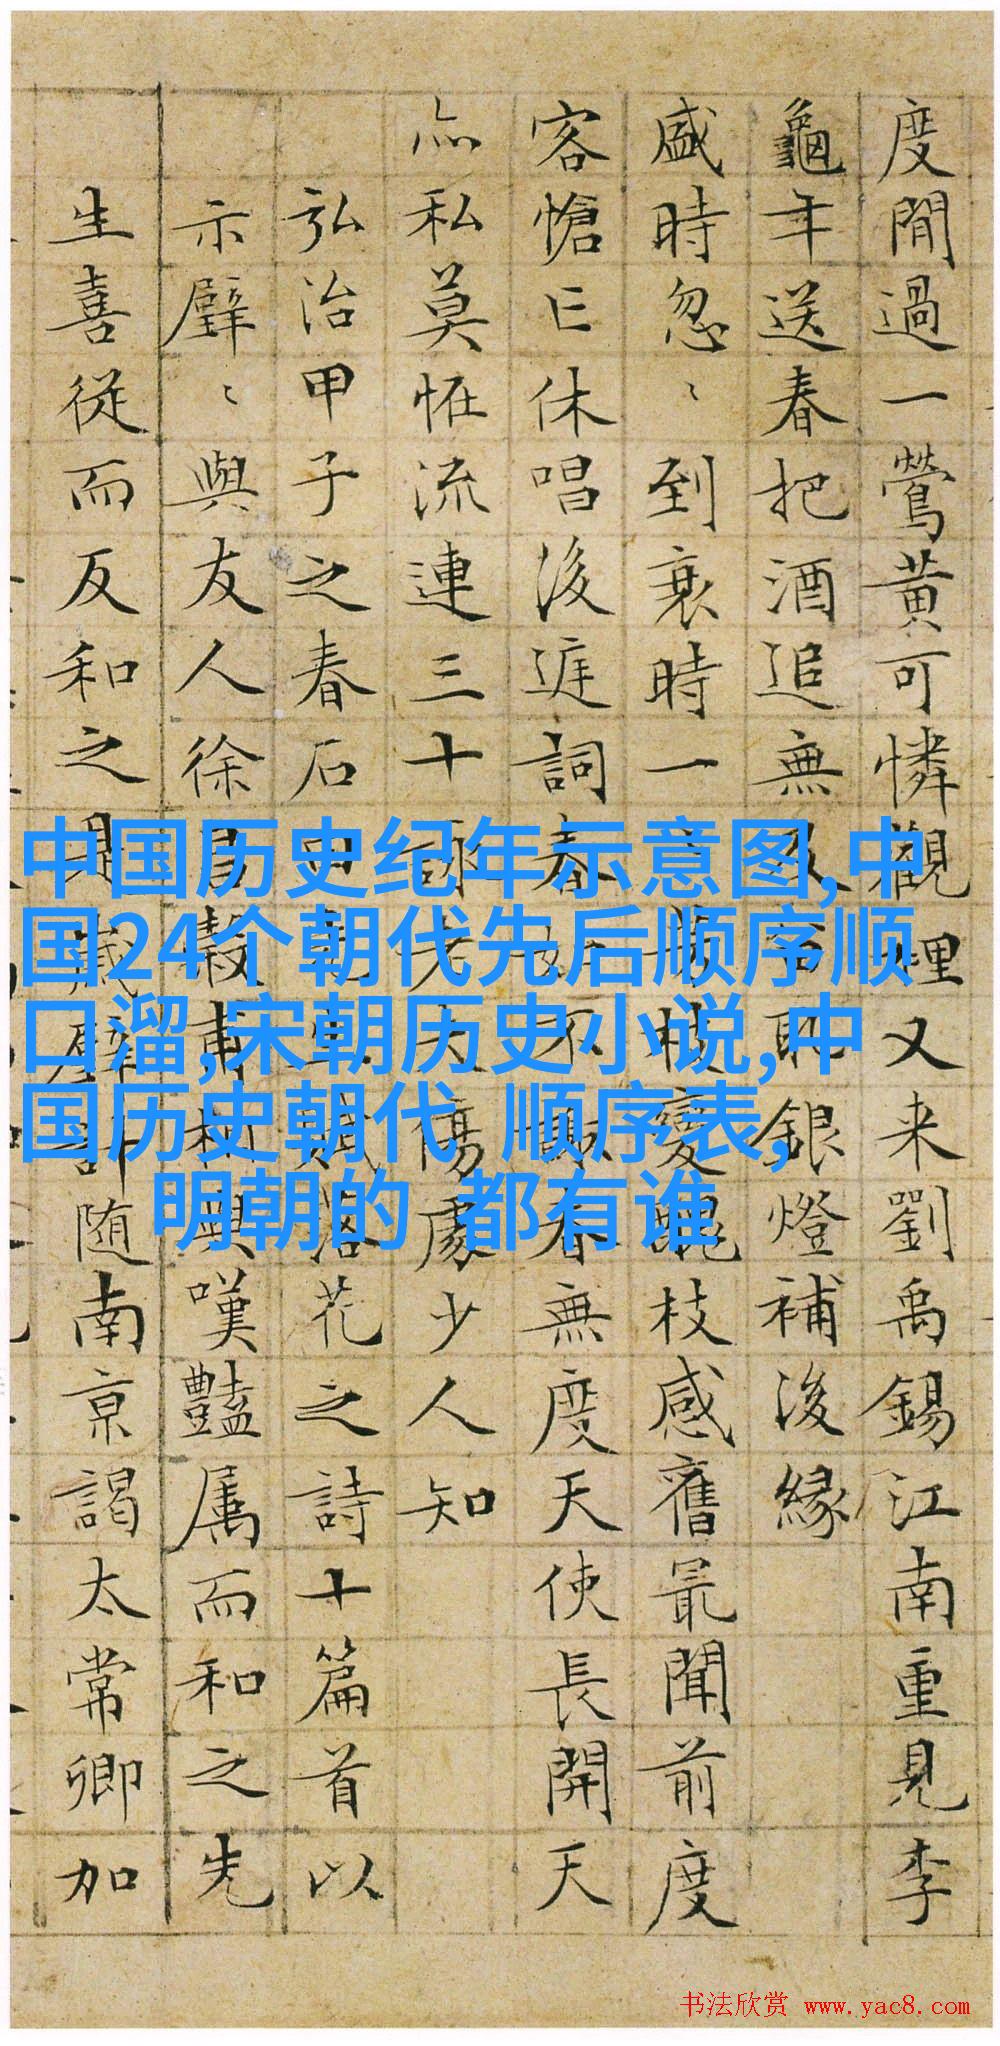 度閒過一鶯黃可憐觀裡又来劉禹锡江南重見李
龜年送春把酒追無及 銀燈補後緣
盛時忽〻到衰時一 枝變 枝感舊最聞前度
客愴亡休唱後庭詞春 春無度天使長開天
亦私莫恠流連三十 老大傷處少人知
弘治甲子之春石田 落花之詩十篇首以
示壁〻與友人徐昌穀甫相與嘆豔属而和之先
生喜從而反和之是歲壁計随南京謁太常卿加
中国历史纪年示意图,中
国24个朝代先后顺序顺
口溜,宋朝历史小说,中
国历史朝代 顺序表,
明朝的 都有谁
书法欣赏 www.yac8.com